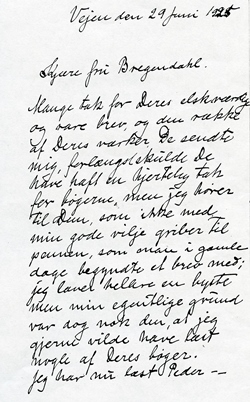 Vejen den 29 Juni 1925
Kjære frú Bregendahl.
Mange tak for Deres elskværdig
og rare brev, og den række
af Deres værker De sendte
mig, forlængst skulde De
have haft en hjertelig tak
for bøgerne, men jeg hører
til dem, som ikke med
min gode vilje griber til
pennen, som man i gamle
dage begyndte et brev med;
jeg laver hellere en byste
men min egentlige grund
var dog nok den, at jeg
gjerne vilde have læst
nogle af Deres bøger.
Jeg har nu læst Peder —